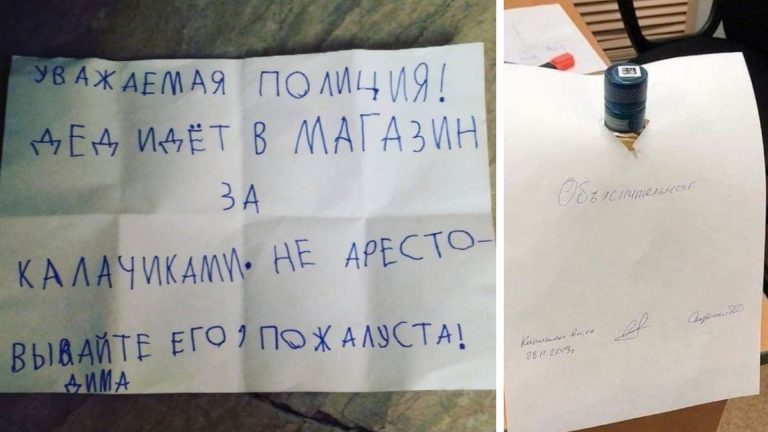 УВАЖАЕМАЯ ПОЛИЦИЯ!
ДЕД ИДЁТ В МАГАЗИН
ЗА
КАЛАЧИКАМИ. НЕ АРЕСТО-
ВЫВАЙТЕ ЕГО, ПОЖАЛУСТА!
ДИМА
Объяснительная
Капитан вн.сл
28.11.2019г